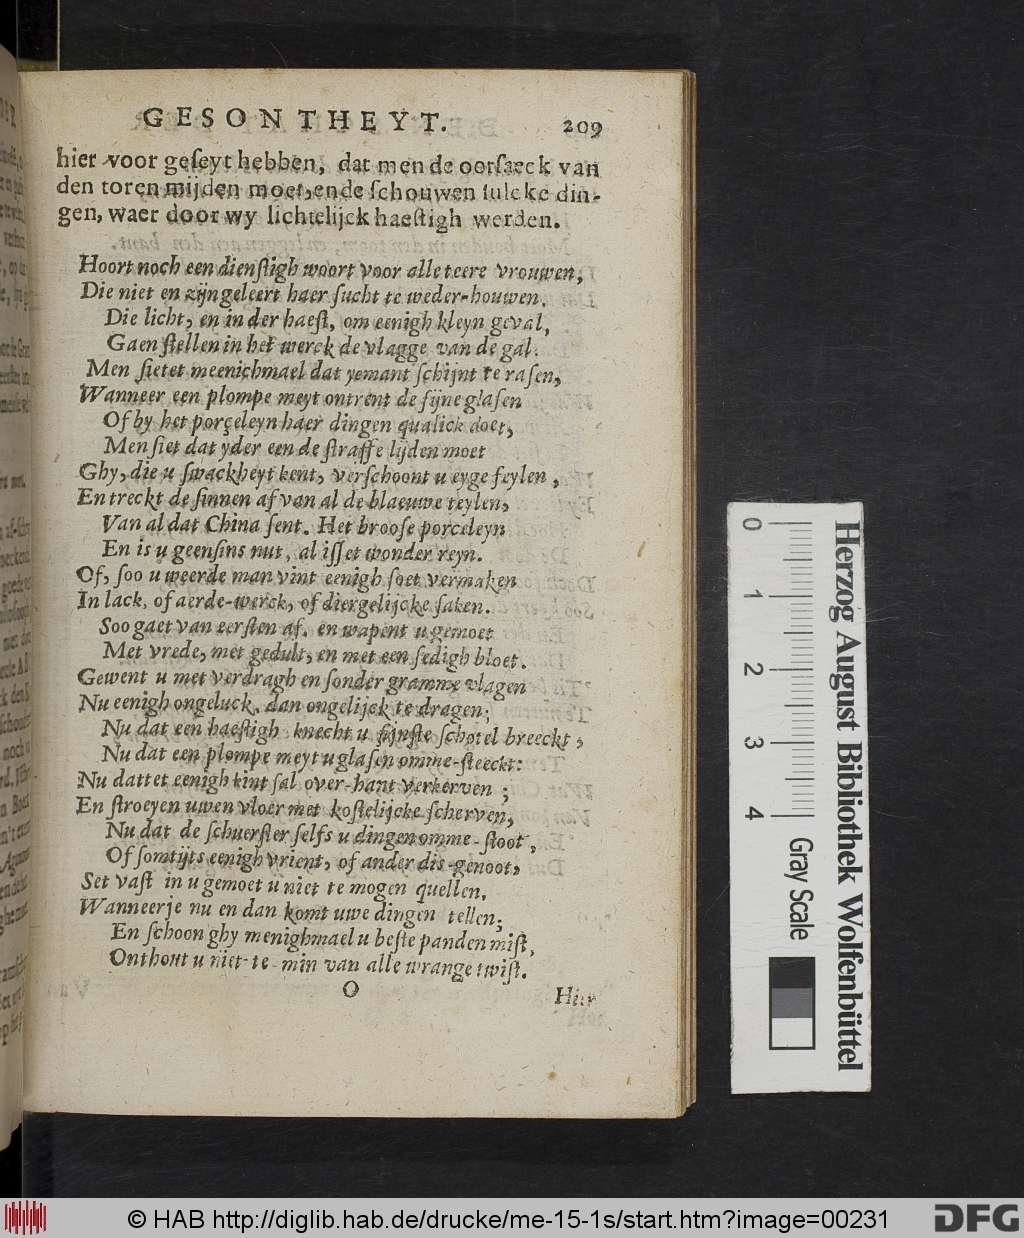 GESONTHEYT. 209
hier voor geſeyt hebben, dat men de oorſaeck van
den toren mijden moet, ende ſchouwen ſulcke din-
gen, waer door wy lichtelijck haeſtigh werden.
Hoort noch een dienſtigh woort voor alle teere vrouwen,
Die niet en zijn geleert haer ſucht te weder-houwen,
Die licht, en in der haeſt, om eenigh kleyn geval,
Gaen ſtellen in het werck de vlagge van de gal.
Men ſietet meenichmael dat yemant ſchijnt te raſen,
Wanneer een plompe meyt ontrent de fijne glaſen
Of by het porçeleyn haer dingen qualick doet,
Men ſiet dat yder een de ſtraffe lijden moet
Ghy, die u ſwackheyt kent, verſchoont u eyge feylen,
En treckt de ſinnen af van al de blaeuwe teylen,
Van al dat China ſent. Het brooſe porceleyn
En is u geenſins nut, al iſſet wonder reyn.
Of, ſoo u weerde man vint eenigh ſoet vermaken
In lack, of aerde-werck, of diergelijcke ſaken.
Soo gaet van eerſten af, en wapent u gemoet
Met vrede, met gedult, en met een ſedigh bloet.
Gewent u met verdragh en ſonder gramme vlagen
Nu eenigh ongeluck, dan ongelijck te dragen;
Nu dat een haeſtigh knecht u fijnſte ſchotel breeckt,
Nu dat een plompe meyt u glaſen omme-ſteeckt:
Nu dattet eenigh kint ſal over-hant verkerven;
En ſtroeyen uwen vloer met koſtelijcke ſcherven,
Nu dat de ſchuerſter ſelfs u dingen omme-ſtoot,
Of ſomtijts eenigh vrient, of ander dis-genoot,
Set vaſt in u gemoet u niet te mogen quellen,
Wanneer je nu en dan komt uwe dingen tellen;
En ſchoon ghy menighmael u beſte panden miſt,
Onthout u niet-te-min van alle wrange twiſt.
O Hier
0 1 2 3 4
Gray Scale
Herzog August Bibliothek Wolfenbüttel
© HAB http://diglib.hab.de/drucke/me-15-1s/start.htm?image=00231
DFG